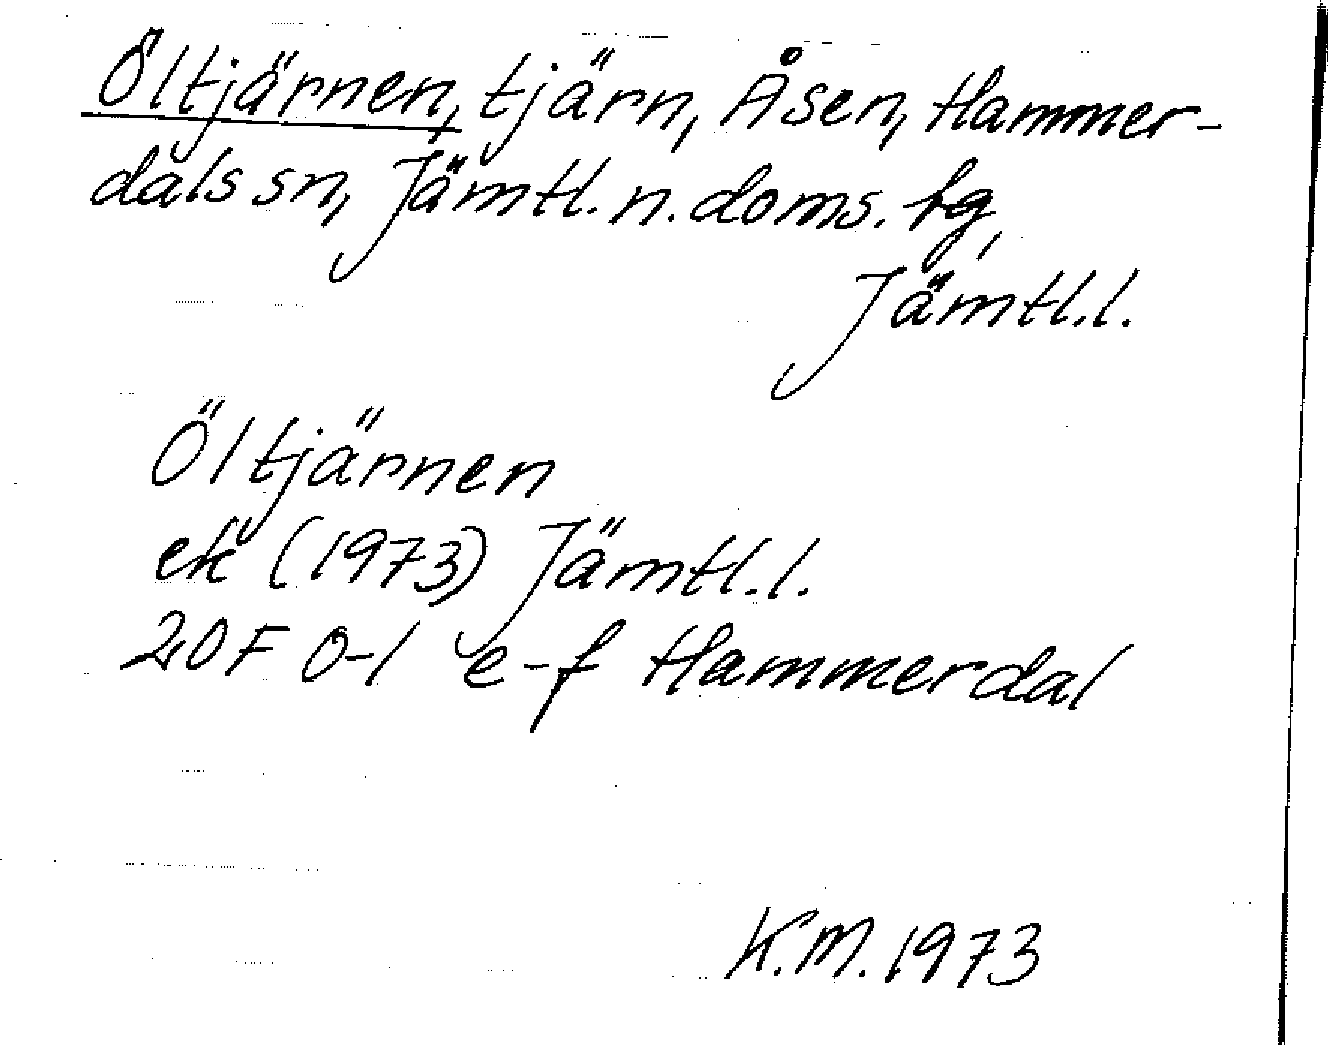 Öltjärnen, tjärn, Åsen, Hammer-
dals sn, Jämtl. n. doms. fg,
Jämtl. l.
Öltjärnen
ek (1973) Jämtl. l.
20F 0-1 e-f Hammerdal
K.M. 1973